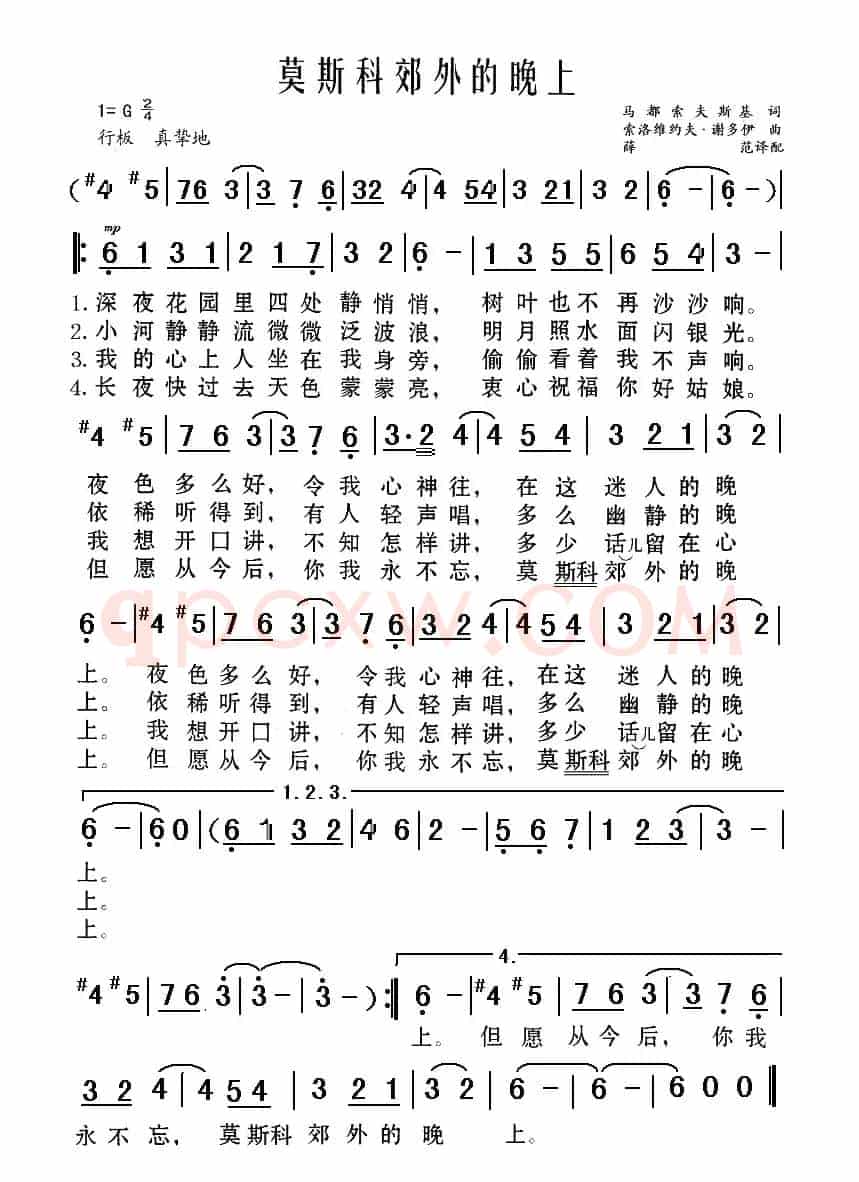 莫斯科郊外的晚上
1= G 2/4
行板 真挚地
马都索夫斯基 词
索洛维约夫·谢多伊 曲
薛 范译配
( #4 #5 | 76 3 | 3 7 6 | 32 4 | 4 54 | 3 21 | 3 2 | 6 – | 6 – )
mp
‖: 6 1 3 1 | 2 1 7 | 3 2 | 6 – | 1 3 5 5 | 6 5 4 | 3 – |
1.深夜花园里四处静悄悄，树叶也不再沙沙响。
2.小河静静流微微泛波浪，明月照水面闪银光。
3.我的心上人坐在我身旁，偷偷看着我不声响。
4.长夜快过去天色蒙蒙亮，衷心祝福你好姑娘。
#4 #5 | 7 6 3 | 3 7 6 | 3·2 4 | 4 5 4 | 3 2 1 | 3 2 |
夜色多么好，令我心神往，在这迷人的晚
依稀听得到，有人轻声唱，多么幽静的晚
我想开口讲，不知怎样讲，多少话儿留在心
但愿从今后，你我永不忘，莫斯科郊外的晚
6 – | #4 #5 | 7 6 3 | 3 7 6 | 3 2 4 | 4 5 4 | 3 2 1 | 3 2 |
qpcxw.COM
上。夜色多么好，令我心神往，在这迷人的晚
上。依稀听得到，有人轻声唱，多么幽静的晚
上。我想开口讲，不知怎样讲，多少话儿留在心
上。但愿从今后，你我永不忘，莫斯科郊外的晚
1.2.3.
6 – | 6 0 | ( 6 1 3 2 | 4 6 | 2 – | 5 6 7 | 1 2 3 | 3 – |
上。
上。
上。
4.
#4 #5 | 7 6 3 | 3 – | 3 – ) :‖ 6 – | #4 #5 | 7 6 3 | 3 7 6 |
上。但愿从今后，你我
3 2 4 | 4 5 4 | 3 2 1 | 3 2 | 6 – | 6 – | 6 0 0 ‖
永不忘，莫斯科郊外的晚 上。